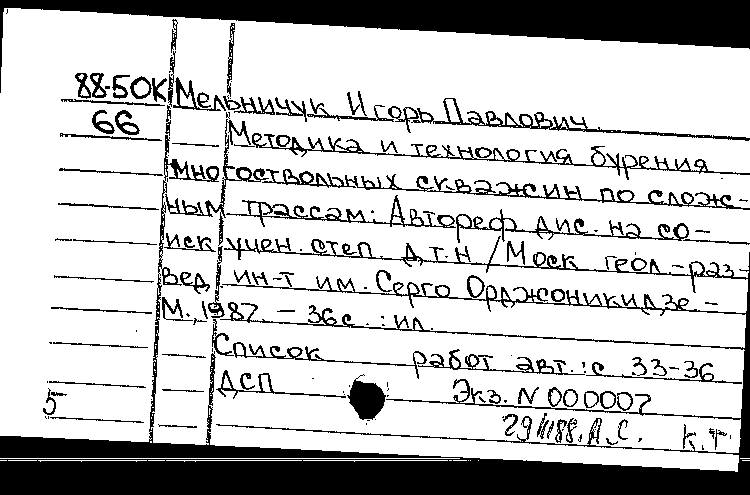 88-50К Мельничук, Игорь Павлович.
66 Методика и технология бурения
многоствольных скважин по слож-
ным трассам: Автореф дис. на со-
иск учен. степ. д.т.н / Моск геол.-раз-
вед ин-т им. Серго Орджоникидзе. -
М., 1987. - 36 с. : ил.
Список работ авт.: с 33-36
ДСП Экз. N 000007
5 А.С. к.т